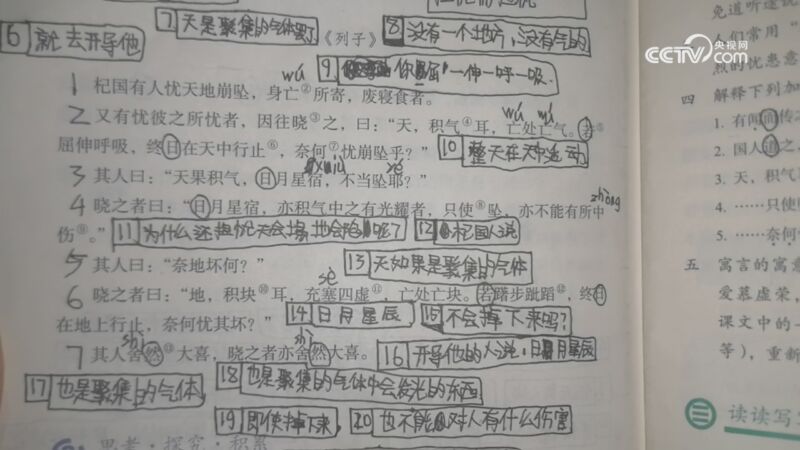 CCTV 央视网
7 天是聚集的气体罢了
《列子》
8 没有一个地方,没有气的
6 就去开导他
9 你屈一伸一呼一吸
wú
1 杞国有人忧天地崩坠,身亡②所寄,废寝食者。
wú wú
2 又有忧彼之所忧者,因往晓③之,曰:“天,积气④耳,亡处亡气。若
屈伸呼吸,终日在天中行止⑥,奈何⑦忧崩坠乎?”
10 整天在天中运动
xiù yé
3 其人曰:“天果积气,日月星宿,不当坠耶?”
zhòng
4 晓之者曰:“日月星宿,亦积气中之有光耀者,只使⑧坠,亦不能有所中
伤⑨。”
11 为什么还担忧天会塌,地会陷呢了
12 杞国人说
5 其人曰:“奈地坏何?”
13 天如果是聚集的气体
sè
6 晓之者曰:“地,积块⑩耳,充塞四虚⑪,亡处亡块。若躇步跐蹈⑫,终日
在地上行止,奈何忧其坏?”
14 日月星辰
15 不会掉下来吗?
shì shì
7 其人舍然⑬大喜,晓之者亦舍然大喜。
16 开导他的人说,日月星辰
17 也是聚集的气体
18 也是聚集的气体中会发光的东西
19 即使掉下来
20 也不能对人有什么伤害
思考·探究·积累
免道听途说
人们常用“
烈的忧患意
四 解释下列加
1. 有闻而传之
2. 国人道之
3. 天,积气
4. ……只使
5. ……奈何
五 寓言的寓意
爱慕虚荣,
课文中的一
等),重新
三 读读写